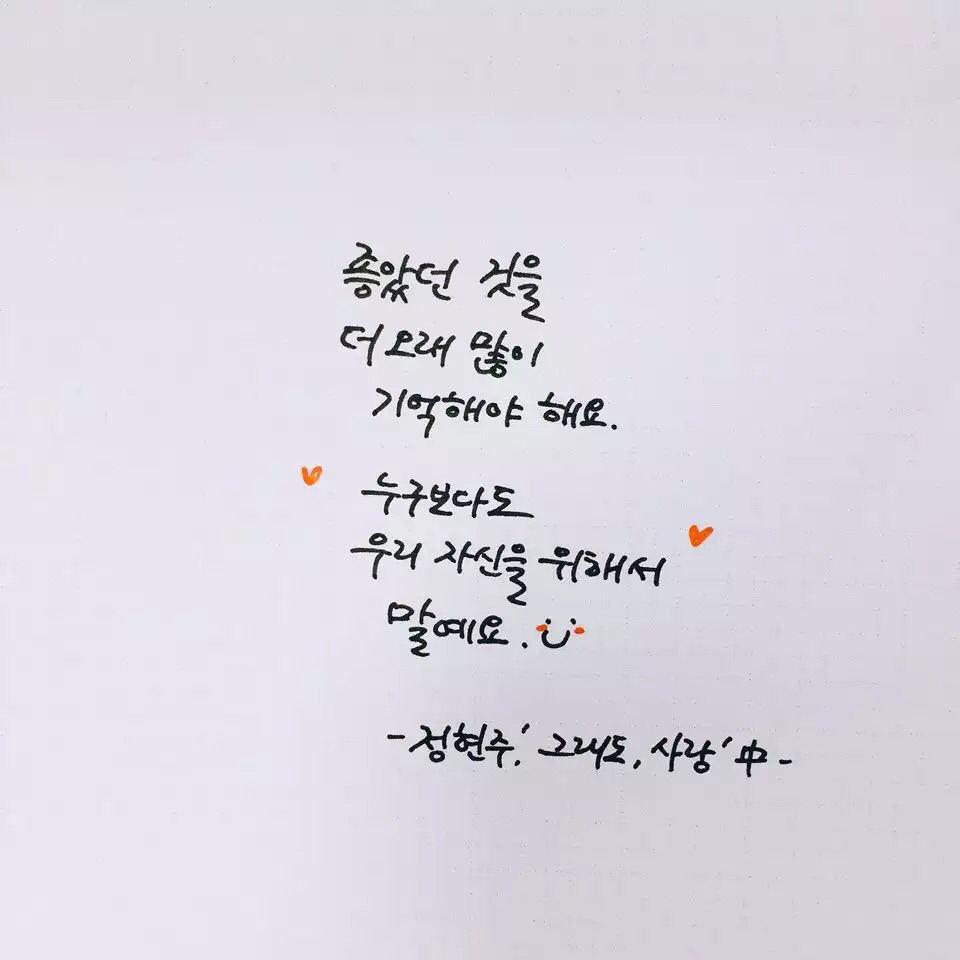 좋았던 것을
더 오래 많이
기억해야 해요.
누구보다도
우리 자신을 위해서
말예요.
- 정현주, '그래도, 사랑' 中 -